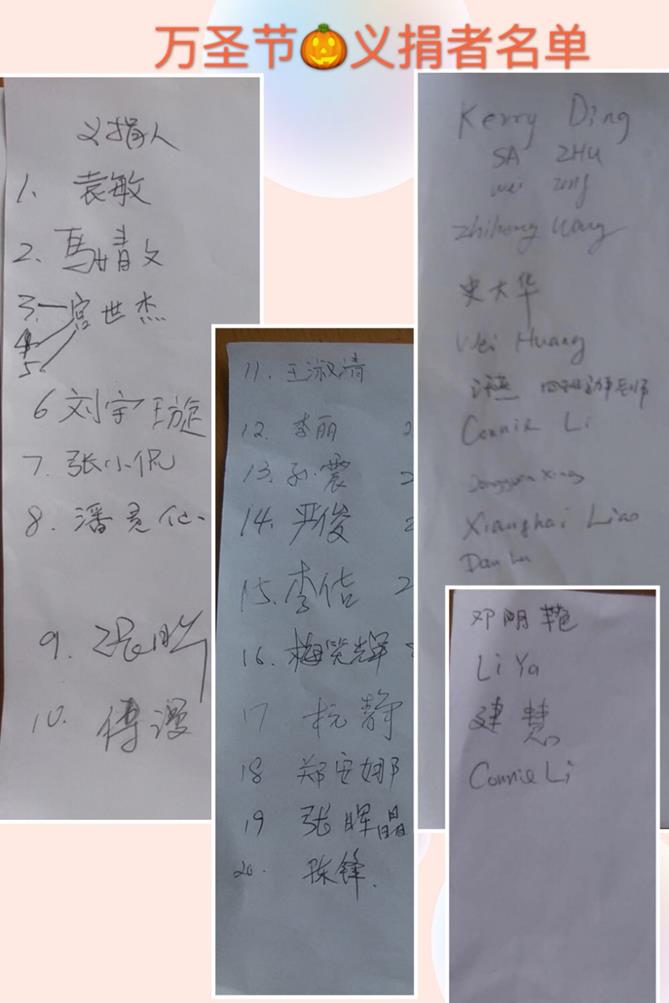 万圣节🎃义捐者名单
义捐人
1. 袁敏
2. 馬婧文
3. 宫世杰
4
5
6 刘宇璇
7. 张小侃
8. 潘
9.
10. 傅漫
11. 王淑清
12. 李丽 2
13. 孙震 2
14. 严俊 2
15. 李佶 2
16. 梅笑辉
17 杭静
18 郑安娜
19 张晖晶
20. 陈锋.
Kerry Ding
SA ZHU
Wei
Zhihong Wang
史大华
Wei Huang
老师
Connie Li
Xianghai Liao
Dan Lu
邓明艳
Li Ya
建慧
Connie Li